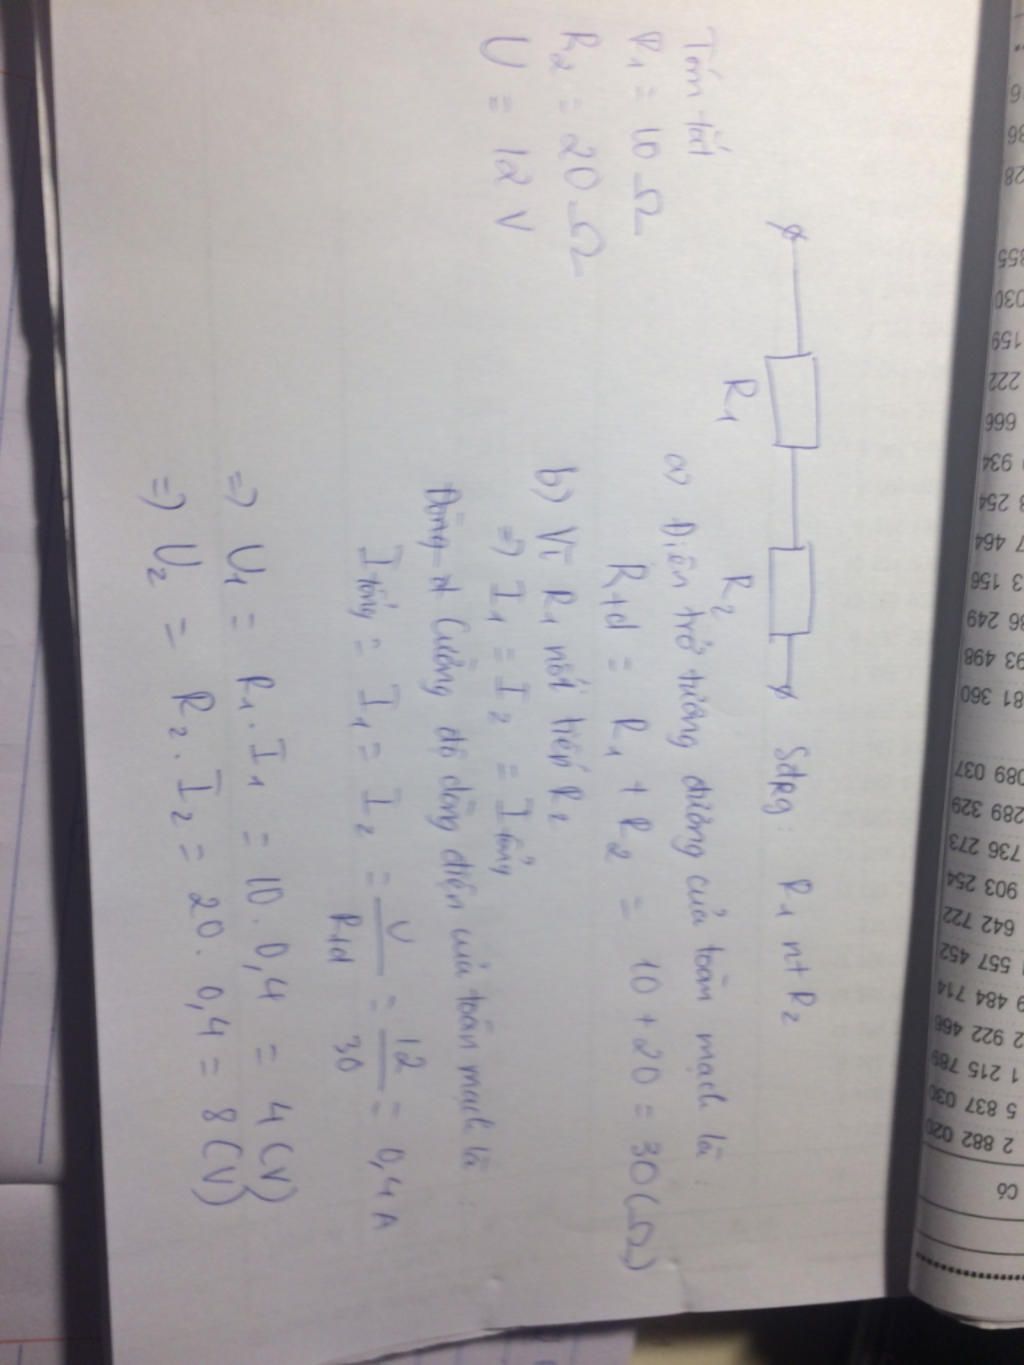 Tóm tắt
R1 = 10 Ω
R2 = 20 Ω
U = 12 V
R1
R2
SđRg: R1 nt R2
a) Điện trở tương đương của toàn mạch là:
Rtđ = R1 + R2 = 10 + 20 = 30 (Ω)
b) Vì R1 nối tiếp R2
=) I1 = I2 = Itổng
Cường độ dòng điện của toàn mạch là:
Itổng = I1 = I2 = U/Rtđ = 12/30 = 0,4 A
=) U1 = R1 . I1 = 10 . 0,4 = 4 (V)
=) U2 = R2 . I2 = 20 . 0,4 = 8 (V)
Có
2 882 020
5 837 030
1 215 789
2 922 466
9 484 714
1 557 452
642 722
903 254
736 273
289 329
089 037
81 360
93 498
36 249
3 156
7 464
3 254
934
666
222
159
030
855
28
36
6